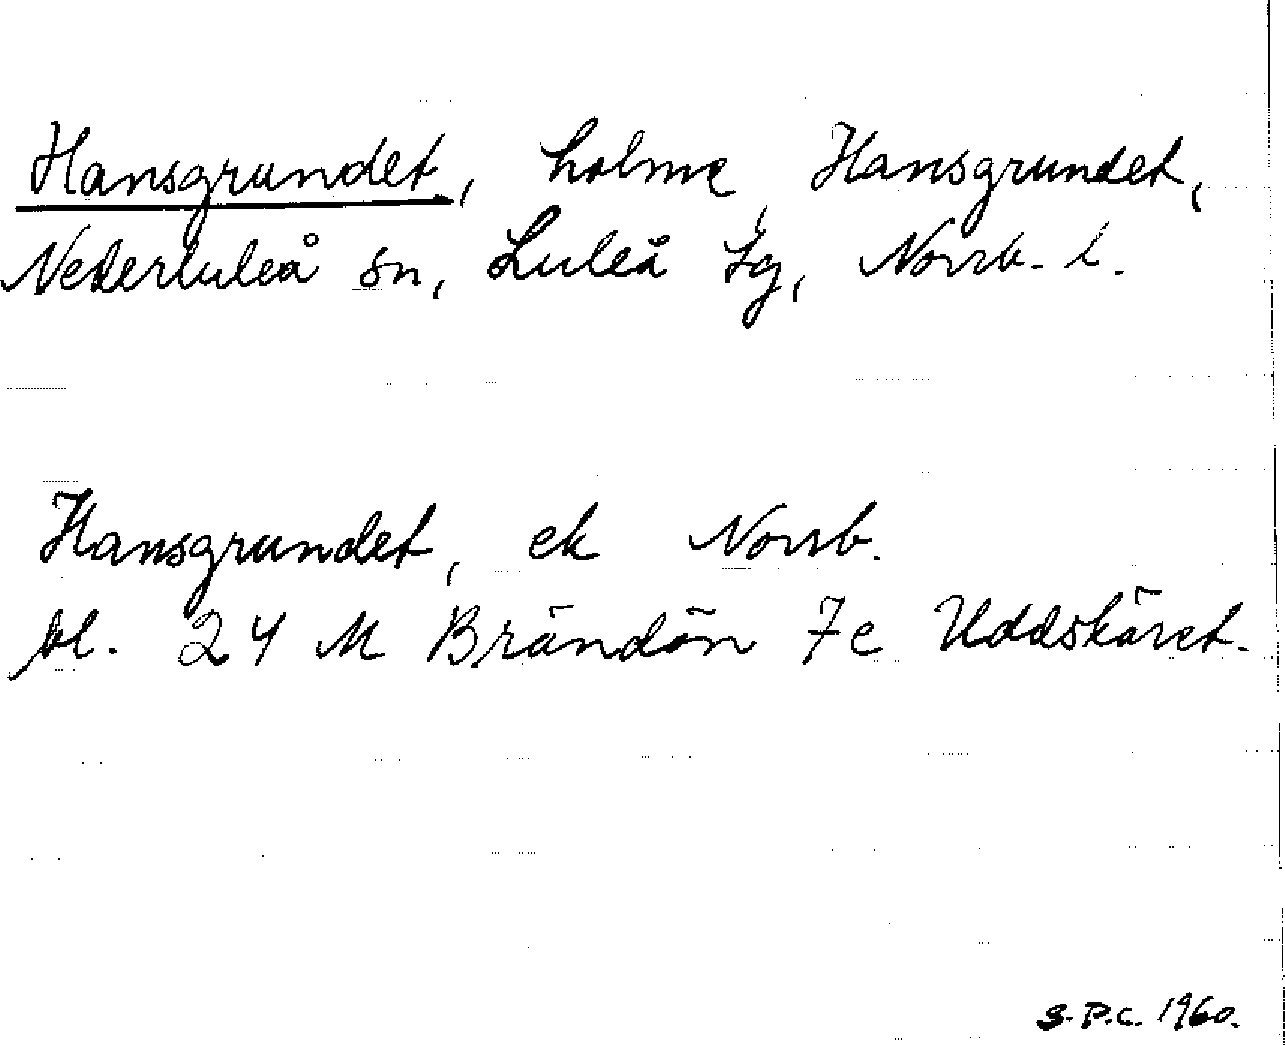 Hansgrundet, holme, Hansgrundet,
Nederluleå sn, Luleå tg, Norrb. l.
Hansgrundet, ek Norrb.
bl. 24 M Brändön 7c Uddskäret.
S.P.C. 1960.